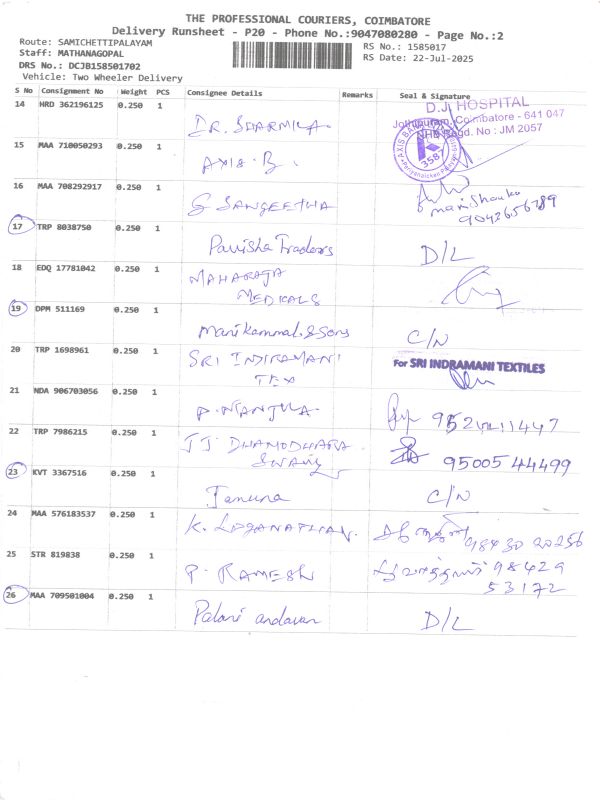 THE PROFESSIONAL COURIERS, COIMBATORE
Delivery Runsheet - P20 - Phone No.:9047080280 - Page No.:2
Route: SAMICHETTIPALAYAM
Staff: MATHANAGOPAL
DRS No.: DCJB158501702
Vehicle: Two Wheeler Delivery
RS No.: 1585017
RS Date: 22-Jul-2025
S No Consignment No Weight PCS Consignee Details Remarks Seal & Signature
14 HRD 362196125 0.250 1
DR. SHARMILA.
D.J. HOSPITAL
Jothipuram, Coimbatore - 641 047
NHB Regd. No : JM 2057
15 MAA 710050293 0.250 1
AXIS. B.
AXIS BA
358
16 MAA 708292917 0.250 1
G SANGEETHA
manishanka
9042656789
17 TRP 8038750 0.250 1
Pavisha Traders D/L
18 EDQ 17781042 0.250 1
MAHARAJA
MEDICALS
19 DPM 511169 0.250 1
Manikammal. & Sons C/N
20 TRP 1698961 0.250 1
SRI INDIRAMANI
TEX
For SRI INDRAMANI TEXTILES
21 NDA 906703056 0.250 1
P. MANJULA.
22 TRP 7986215 0.250 1
JJ DHAMODHARA
SWAMY
95005 44499
23 KVT 3367516 0.250 1
Jamuna C/N
24 MAA 576183537 0.250 1
K. LOGANATHAN.
98430 20256
25 STR 819838 0.250 1
P. RAMESH 98429
53172
26 MAA 709501004 0.250 1
Palani andavar D/L